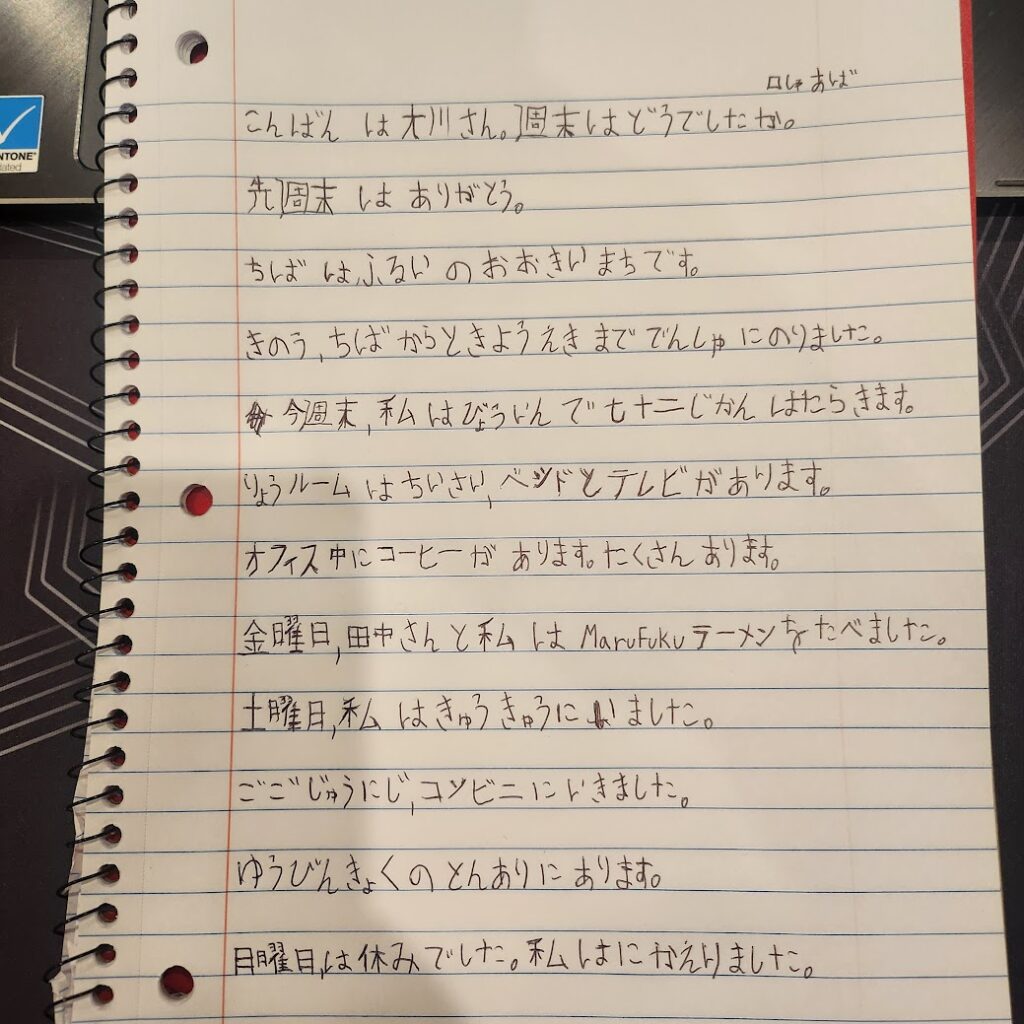 口しゅあば
こんばんは大川さん。週末はどうでしたか。
先週末はありがとう。
ちばはふるいのおおきいまちです。
NTONE
ated
きのう,ちばからときようえきまででんしゃにのりました。
今週末,私はびょういんで七十二じかんはたらきます。
りょうルームはちいさい,ベッドとテレビがあります。
オフィス中にコーヒーがあります。たくさんあります。
金曜日,田中さんと私はMaruFukuラーメンをたべました。
土曜日,私はきゅうきゅうにいました。
ごごじゅうにじ,コンビニにいきました。
ゆうびんきょくのとんありにあります。
日曜日,は休みでした。私はにかえりました。